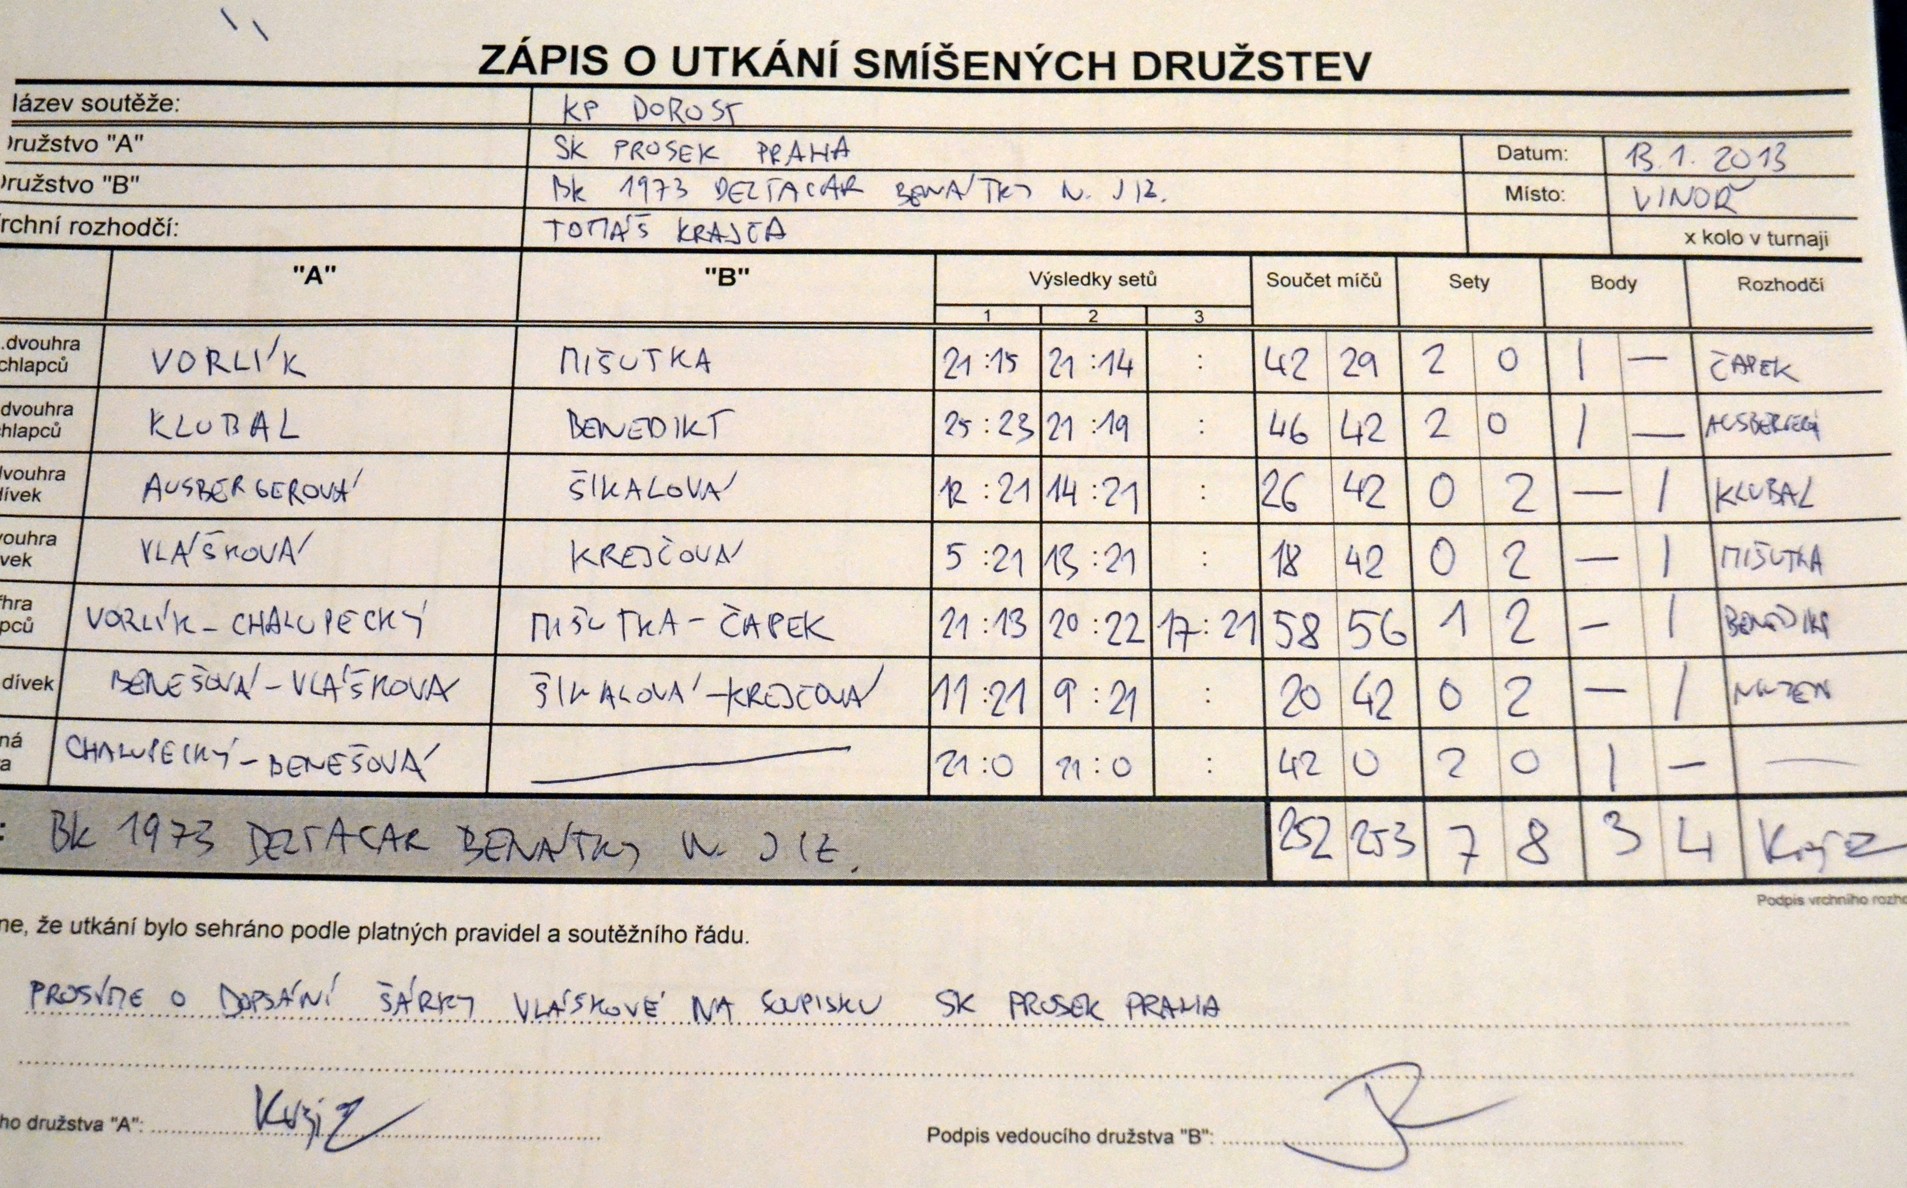 ZÁPIS O UTKÁNÍ SMÍŠENÝCH DRUŽSTEV
lázev soutěže: KP DOROST
Družstvo "A" SK PROSEK PRAHA Datum: 13.1. 2013
Družstvo "B" BK 1973 DELTACAR BENÁTKY N. JIZ. Místo: VINOŘ
rchní rozhodčí: TOMÁŠ KRAJČA x kolo v turnaji
"A" "B" Výsledky setů Součet míčů Sety Body Rozhodčí
1 2 3
.dvouhra chlapců VORLÍK MIŠUTKA 21:15 21:14 : 42 29 2 0 1 — ČAPEK
dvouhra hlapců KLUBAL BENEDIKT 25:23 21:19 : 46 42 2 0 1 —
vouhra ívek AUSBERGEROVÁ ŠIKALOVÁ 12:21 14:21 : 26 42 0 2 — 1 KLUBAL
vouhra vek VLÁŠKOVÁ KREJČOVÁ 5:21 13:21 : 18 42 0 2 — 1 MIŠUTKA
hra pců VORLÍK - CHALUPECKÝ MIŠUTKA - ČAPEK 21:13 20:22 17:21 58 56 1 2 — 1 BENEDIKT
dívek BENEŠOVÁ - VLÁŠKOVA ŠIKALOVÁ - KREJČOVÁ 11:21 9:21 : 20 42 0 2 — 1
ná a CHALUPECKÝ - BENEŠOVÁ — 21:0 21:0 : 42 0 2 0 1 — —
: BK 1973 DELTACAR BENÁTKY N. JIZ. 252 253 7 8 3 4
Podpis vrchního rozho
ne, že utkání bylo sehráno podle platných pravidel a soutěžního řádu.
PROSÍME O DOPSÁNÍ ŠÁRKY VLÁŠKOVÉ NA SOUPISKU SK PROSEK PRAHA
ho družstva "A":
Podpis vedoucího družstva "B":